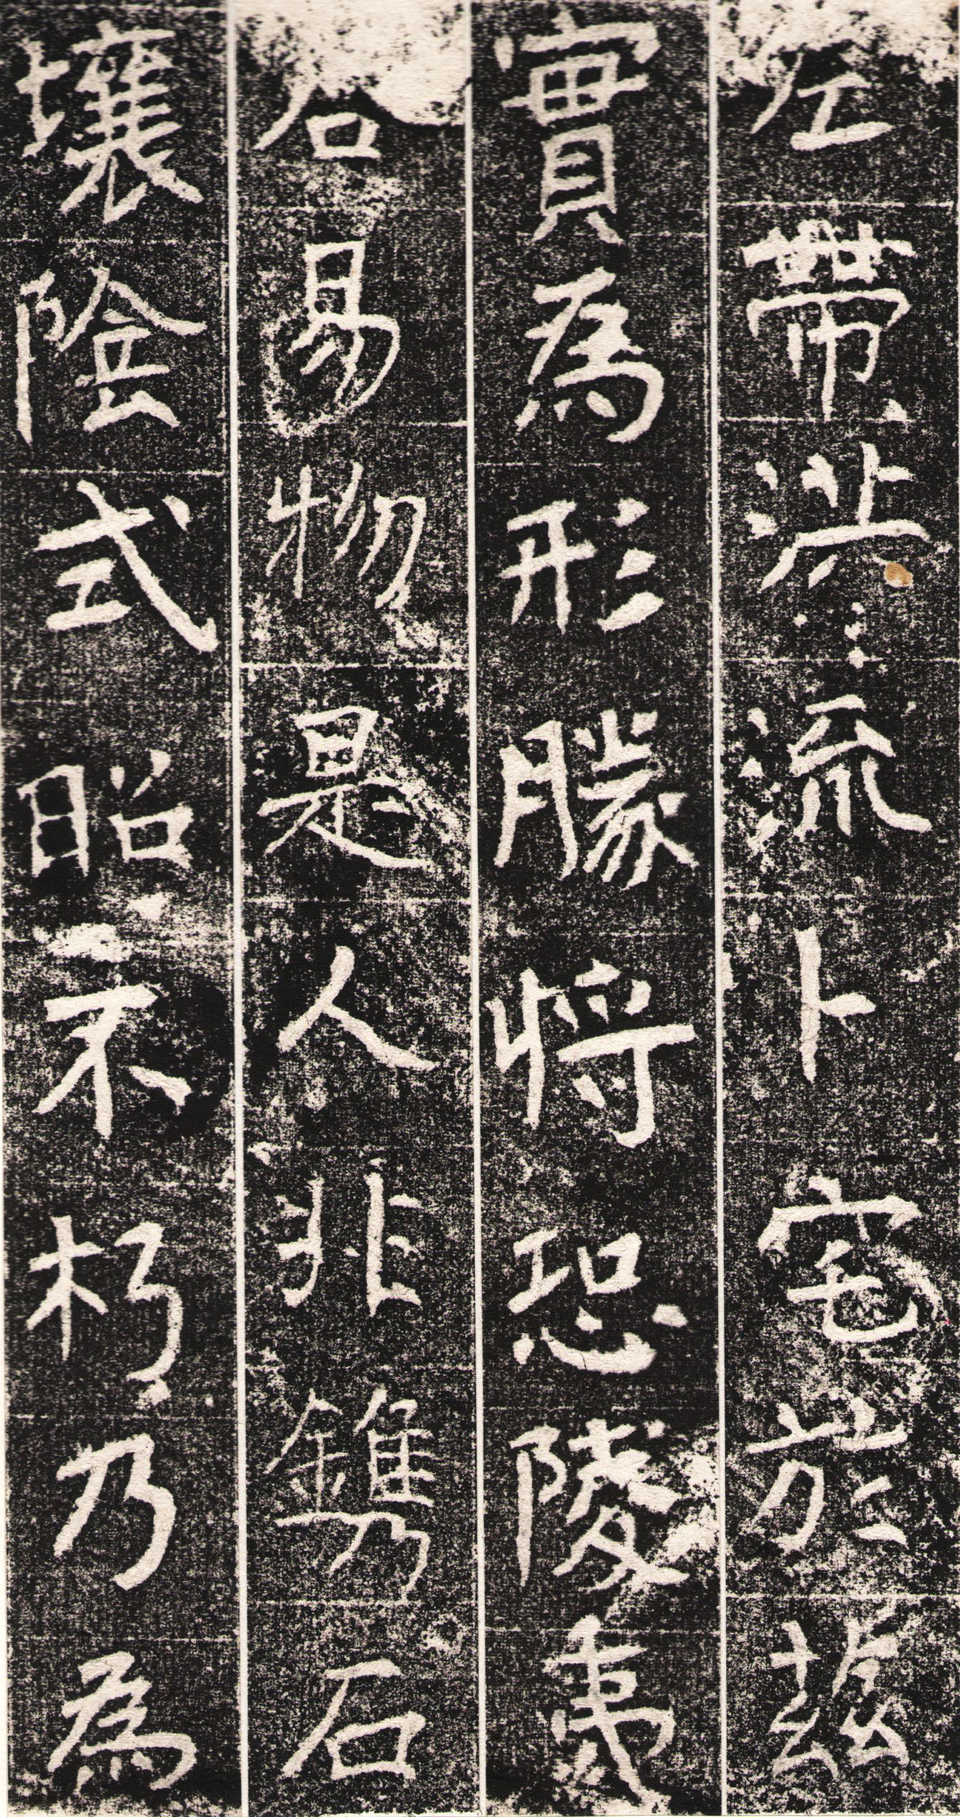 左帶洪流卜宅於茲
實為形勝將恐陵夷
谷易物是人非鐫石
壤陰式昭不朽乃為